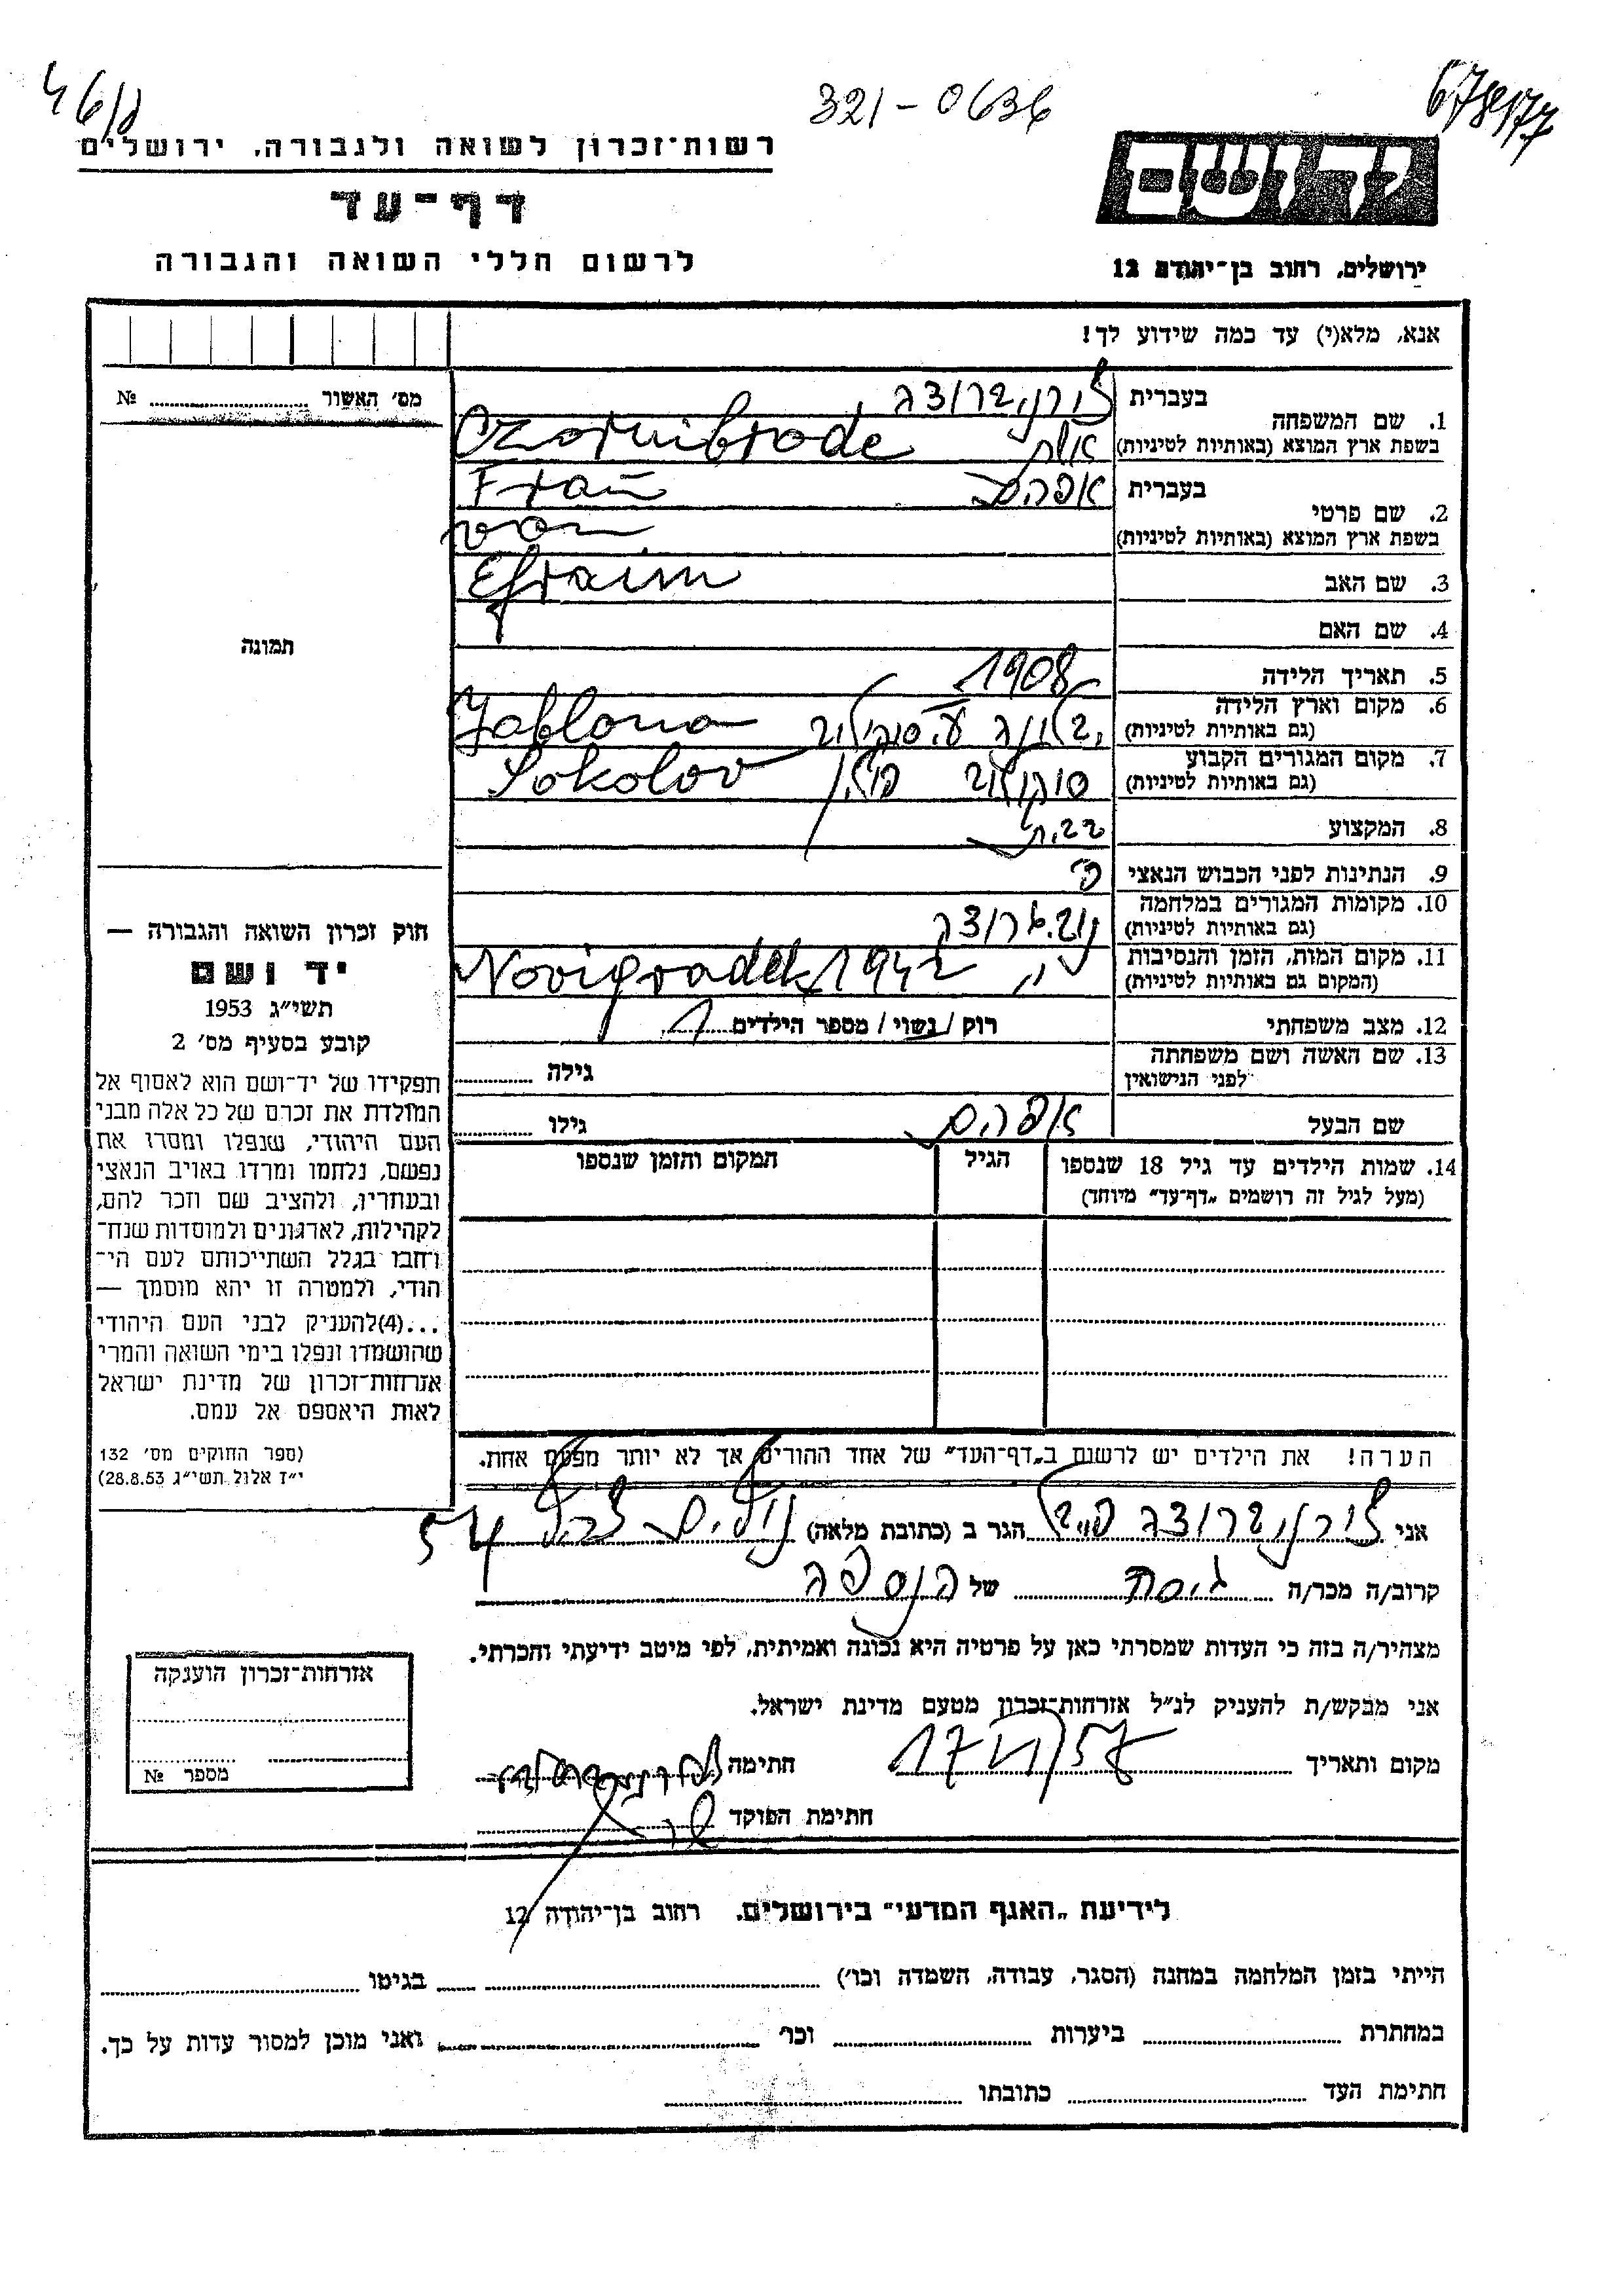 46/8
321-0636
678/77
רשות-זכרון לשואה ולגבורה, ירושלים
דף-עד
לרשום חללי השואה והגבורה
יד ושם
ירושלים, רחוב בן-יהודה 12
אנא, מלא(י) עד כמה שידוע לך!
מס' האשור № 
1. שם המשפחה
בעברית
בשפת ארץ המוצא (באותיות לטיניות)
Czornibrode אשת
2. שם פרטי
בעברית אפרים
Frau
בשפת ארץ המוצא (באותיות לטיניות)
von
3. שם האב
Efraim
4. שם האם
5. תאריך הלידה 1908
6. מקום וארץ הלידה
(גם באותיות לטיניות)
Jablona
7. מקום המגורים הקבוע
(גם באותיות לטיניות)
סוקולוב פולין Sokolov
8. המקצוע
9. הנתינות לפני הכבוש הנאצי פ'
10. מקומות המגורים במלחמה
(גם באותיות לטיניות)
11. מקום המות, הזמן והנסיבות
(המקום גם באותיות לטיניות)
Novigradek 1942
12. מצב משפחתי רוק / נשוי / מספר הילדים 1
13. שם האשה ושם משפחתה
לפני הנישואין
גילה
שם הבעל אפרים גילו
14. שמות הילדים עד גיל 18 שנספו
(מעל לגיל זה רושמים "דף-עד" מיוחד)
הגיל
המקום והזמן שנספו
תמונה
חוק זכרון השואה והגבורה —
יד ושם
תשי"ג 1953
קובע בסעיף מס' 2
תפקידו של יד-ושם הוא לאסוף אל
המולדת את זכרם של כל אלה מבני
העם היהודי, שנפלו ומסרו את
נפשם, נלחמו ומרדו באויב הנאצי
ובעוזריו, ולהציב שם וזכר להם,
לקהילות, לארגונים ולמוסדות שנח-
רחבו בגלל השתייכותם לעם הי-
הודי, ולמטרה זו יהא מוסמך —
...(4) להעניק לבני העם היהודי
שהושמדו ונפלו בימי השואה והמרי
אזרחות-זכרון של מדינת ישראל
לאות היאספם אל עמם.
(ספר החוקים מס' 132
י"ז אלול תשי"ג 28.8.53)
הערה! את הילדים יש לרשום ב"דף-העד" של אחד ההורים אך לא יותר מפעם אחת.
אני הגר ב (כתובת מלאה) 54
קרוב/ה מכר/ה גיסה של הנספה
מצהיר/ה בזה כי העדות שמסרתי כאן על פרטיה היא נכונה ואמיתית, לפי מיטב ידיעתי והכרתי.
אני מבקש/ת להעניק לנ"ל אזרחות-זכרון מטעם מדינת ישראל.
מקום ותאריך 17/VI/57 חתימה
חתימת הפוקד
אזרחות-זכרון הוענקה
מספר №
לידיעת "האגף המדעי" בירושלים, רחוב בן-יהודה 12
הייתי בזמן המלחמה במחנה (הסגר, עבודה, השמדה וכו') בגיטו
במחתרת ביערות וכו' ואני מוכן למסור עדות על כך.
חתימת העד כתובתו